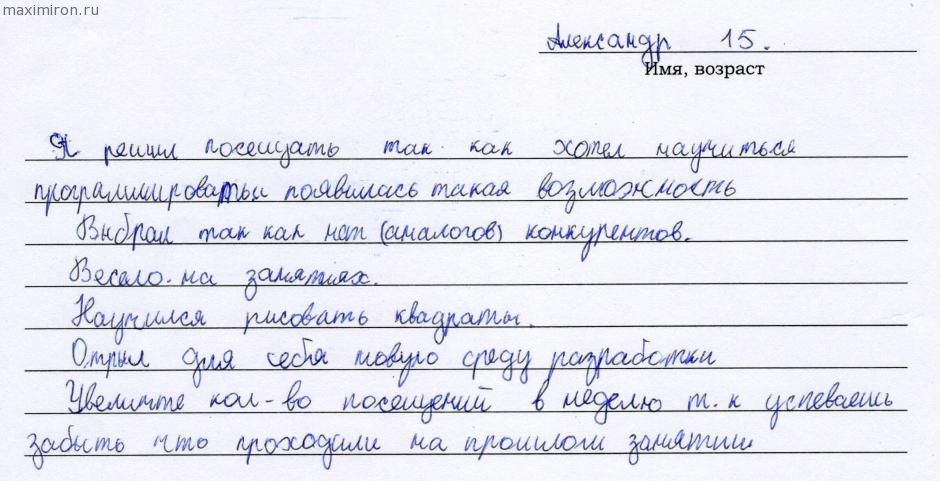 maximiron.ru
Александр 15.
Имя, возраст
Я решил посещать так как хотел научиться
программировать и появилась такая возможность
Выбрал так как нет (аналогов) конкурентов.
Весело на занятиях.
Научился рисовать квадраты.
Отрыл для себя новую среду разработки
Увеличте кол-во посещений в неделю т.к успеваешь
забыть что проходили на прошлом занятии